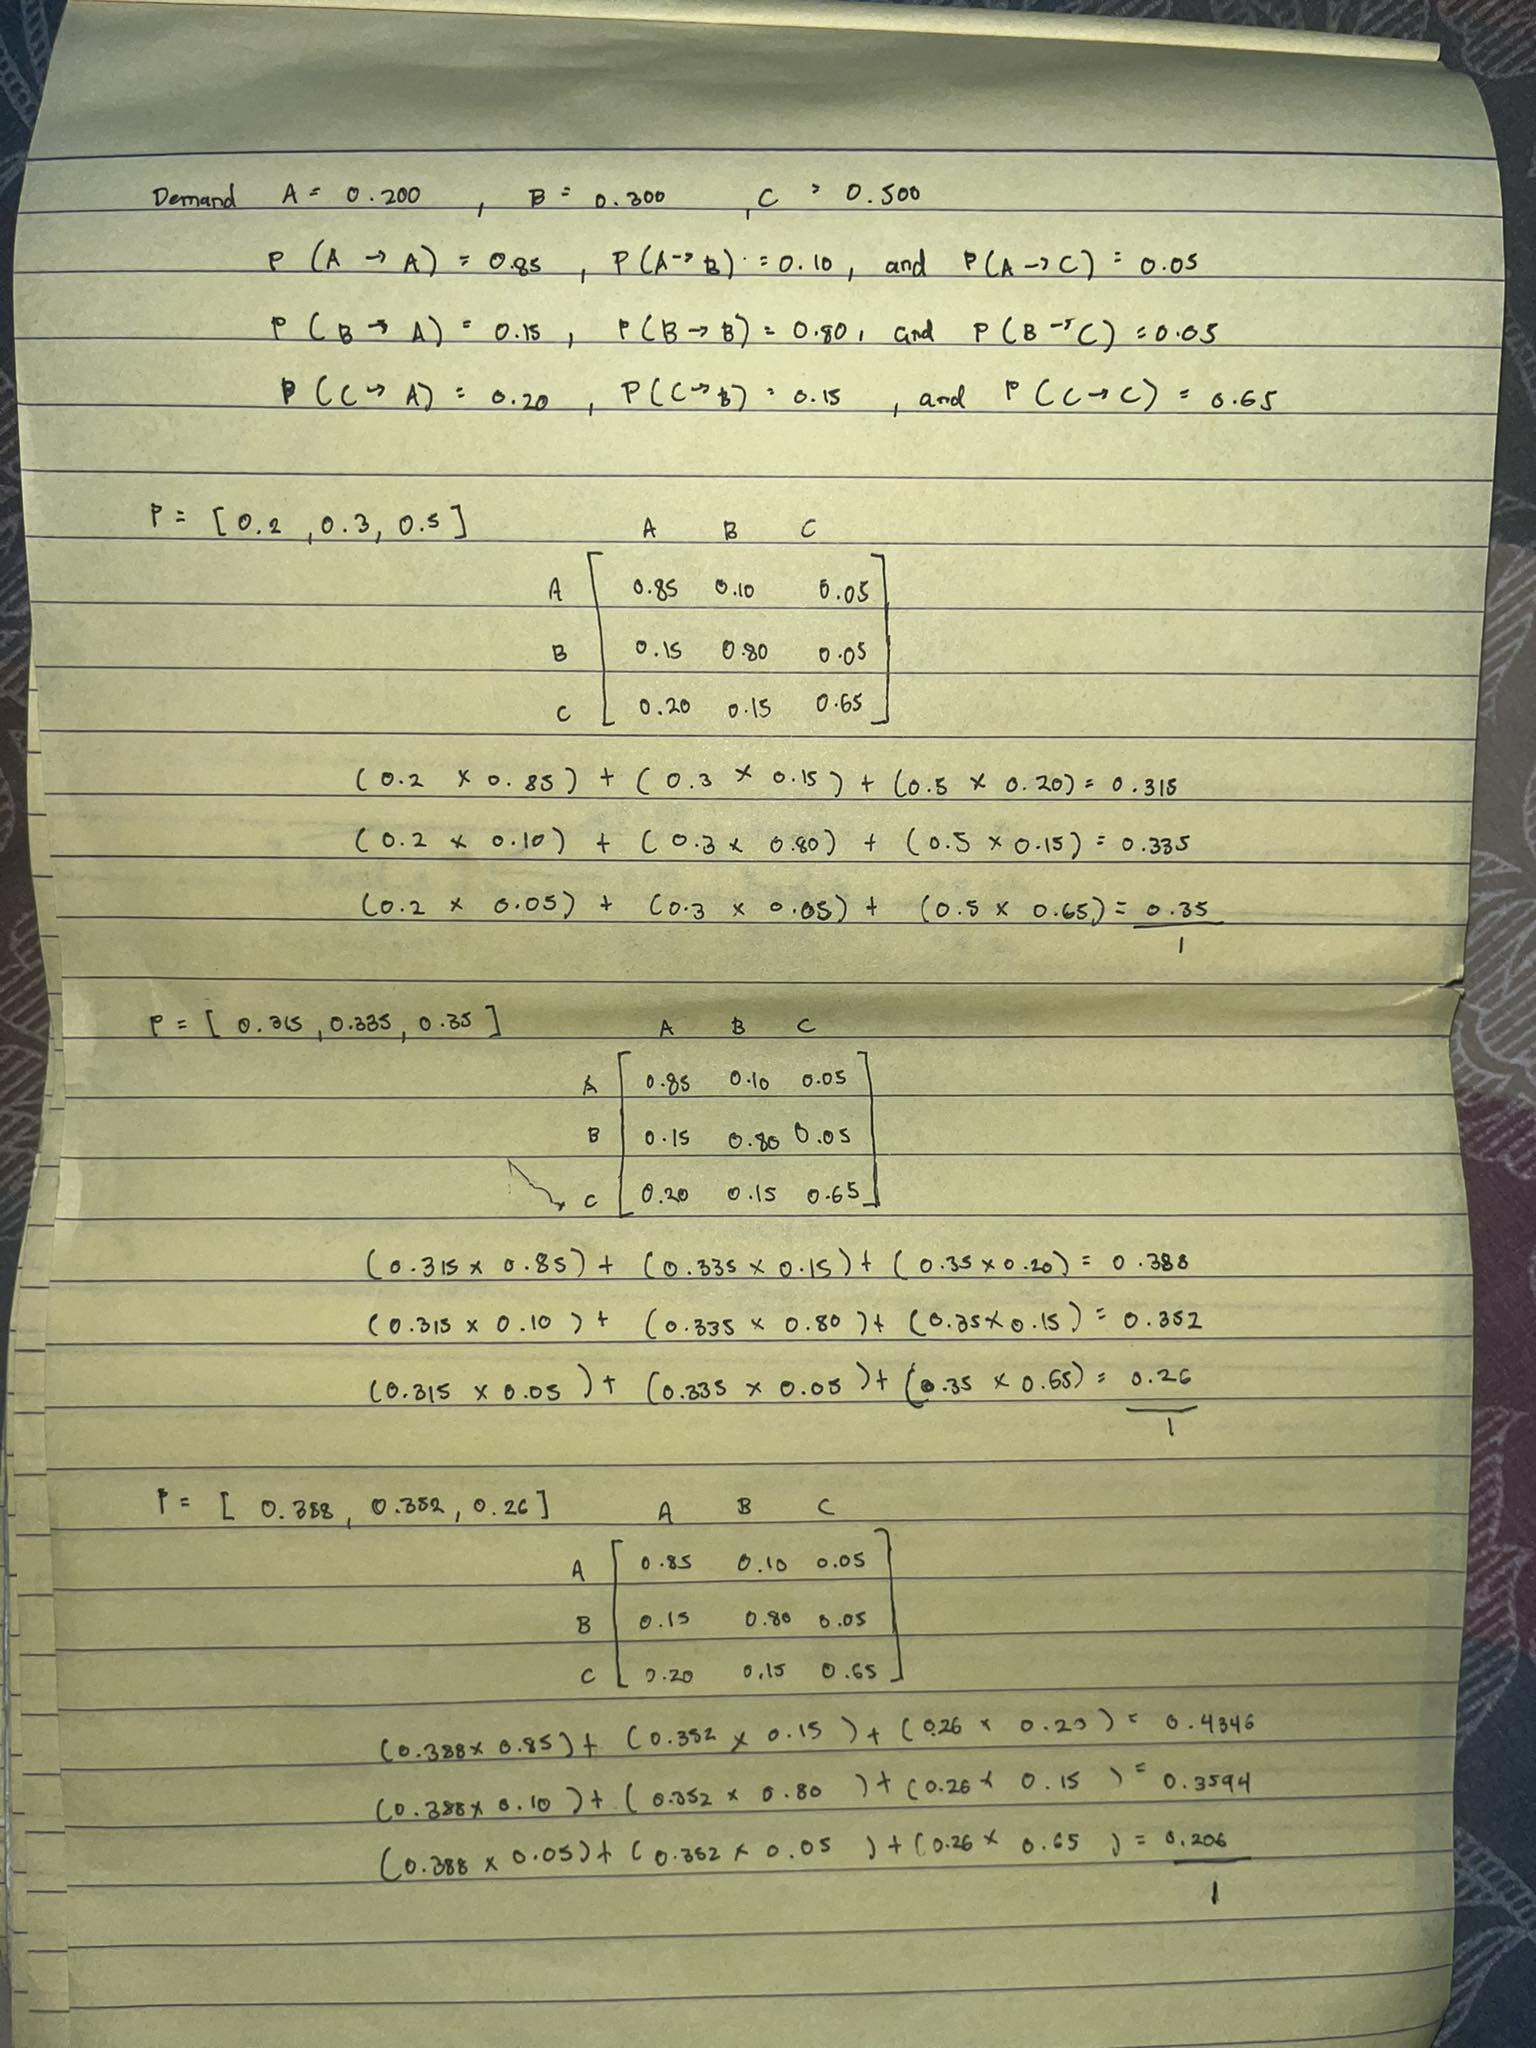 Demand A = 0.200 , B = 0.300 , C = 0.500
P (A → A) = 0.85 , P(A→B) = 0.10, and P(A→C) = 0.05
P (B → A) = 0.15 , P(B→B) = 0.80, and P(B→C) = 0.05
P (C→A) = 0.20 , P(C→B) = 0.15 , and P(C→C) = 0.65
P = [0.2 ,0.3, 0.5] A B C
A 0.85 0.10 0.05
B 0.15 0.80 0.05
C 0.20 0.15 0.65
(0.2 × 0.85) + (0.3 × 0.15) + (0.5 × 0.20) = 0.315
(0.2 × 0.10) + (0.3 × 0.80) + (0.5 × 0.15) = 0.335
(0.2 × 0.05) + (0.3 × 0.05) + (0.5 × 0.65) = 0.35
1
P = [0.315 ,0.335, 0.35] A B C
A 0.85 0.10 0.05
B 0.15 0.80 0.05
C 0.20 0.15 0.65
(0.315 × 0.85) + (0.335 × 0.15) + (0.35 × 0.20) = 0.388
(0.315 × 0.10) + (0.335 × 0.80) + (0.35 × 0.15) = 0.352
(0.315 × 0.05) + (0.335 × 0.05) + (0.35 × 0.65) = 0.26
1
P = [0.388, 0.352, 0.26] A B C
A 0.85 0.10 0.05
B 0.15 0.80 0.05
C 0.20 0.15 0.65
(0.388 × 0.85) + (0.352 × 0.15) + (0.26 × 0.20) = 0.4346
(0.388 × 0.10) + (0.352 × 0.80) + (0.26 × 0.15) = 0.3594
(0.388 × 0.05) + (0.352 × 0.05) + (0.26 × 0.65) = 0.206
1